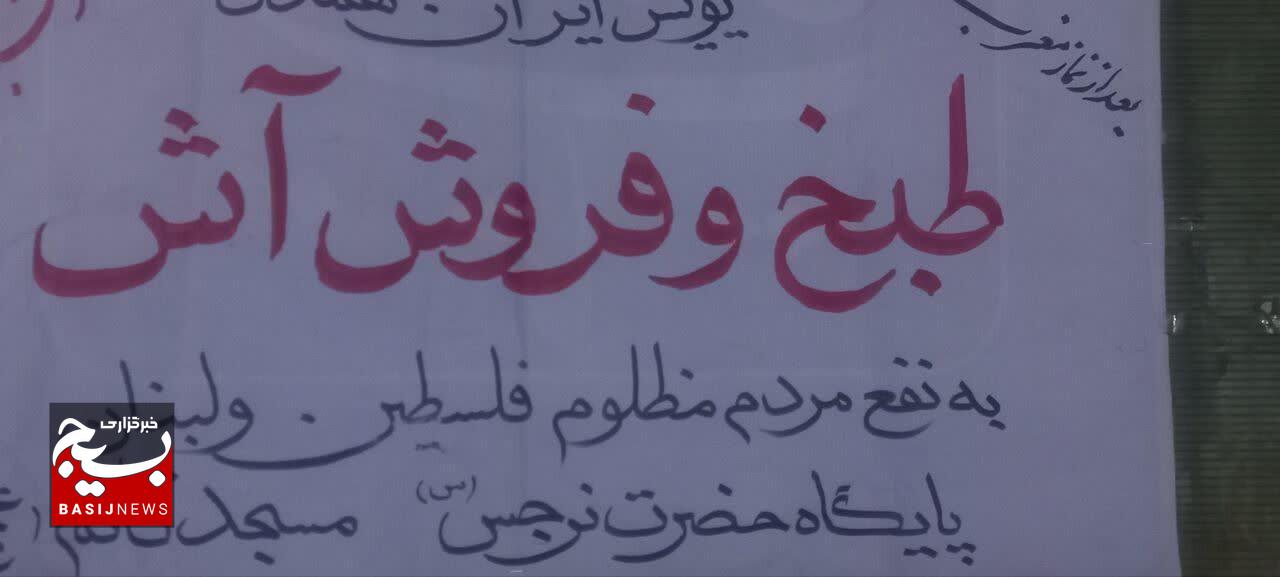 پویش ایران همدل
بعد از نماز مغرب
طبخ و فروش آش
به نفع مردم مظلوم فلسطین . ولبنان
پایگاه حضرت نرجس (س) مسجد قائم (
خبرگزاری
بسیج
BASIJNEWS